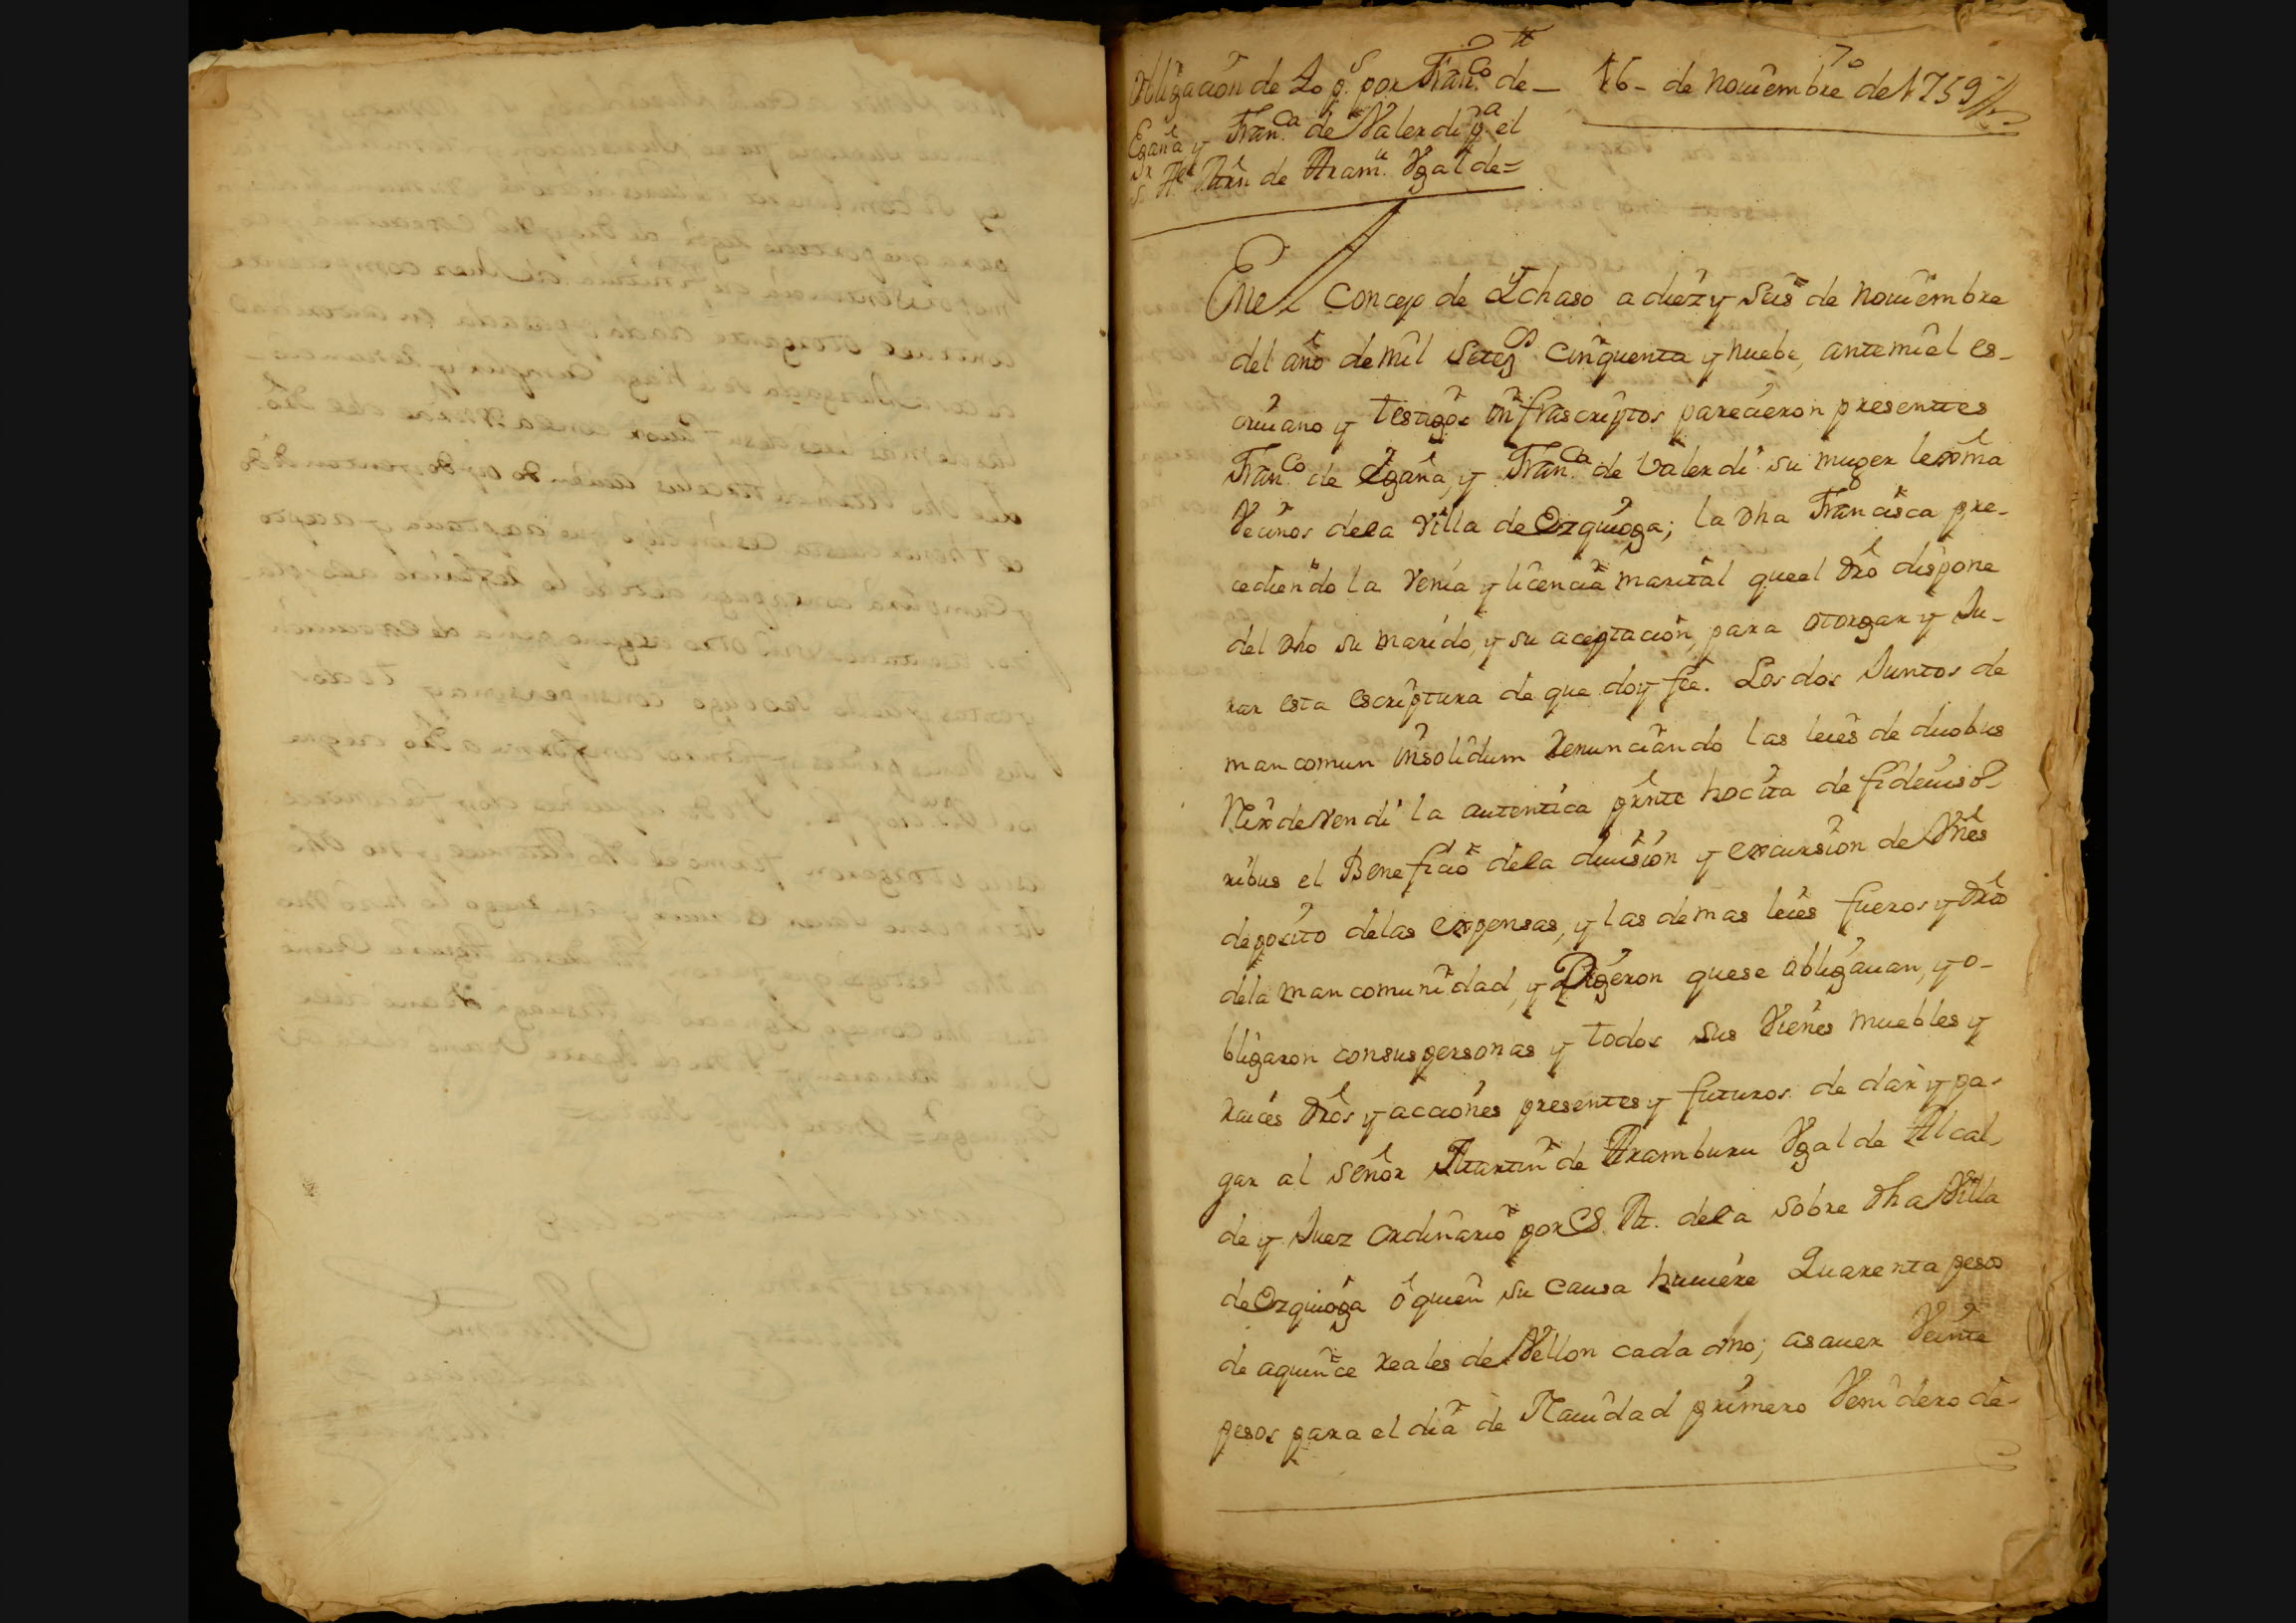 Obligacion de 40 ps. por Franco. de
Egaña y Franca. de Valerdi pa. el
Sr. Alde. Mrn de Aram.u Vgalde=
16- de Nouiembre de 1759
70
En el Concejo de Ychaso a diez y Seis de Nouiembre
del año de mil Seteos. Cinquenta y nuebe, ante mi el es-
criuano y testigos infrascriptos parecieron presentes
Franco. de Egaña, y Franca. de Valerdi su muger lexma
Vecinos dela Villa de Ezquioga; la dha Francisca pre-
cediendo la venia y licencia marital que el dro dispone
del dho su marido, y su aceptacion, para otorgar y Ju-
rar esta escriptura de que doy fee. Los dos Juntos de
mancomun insolidum Renunciando las leies de duobus
Rex de vendi la autentica prnte hocita de fideiuso-
ribus el Beneficio dela diuision y excursion de Vnes
deposito delas expensas, y las demas leies fueros y dro
dela mancomunidad, y Digeron que se obligauan, y o-
bligaron con sus personas y todos sus Vienes muebles y
Raices dros y acciones presentes y futuros de dar y pa-
gar al señor Martin de Aramburu Vgalde Alcal-
de y Juez ordinario por S. M. dela sobre dha Villa
de Ezquioga ó quien su causa huuiere Quarenta pesos
de aquince reales de Vellon cada vno; asauer Veinte
pesos para el dia de Nauidad primero Venidero de